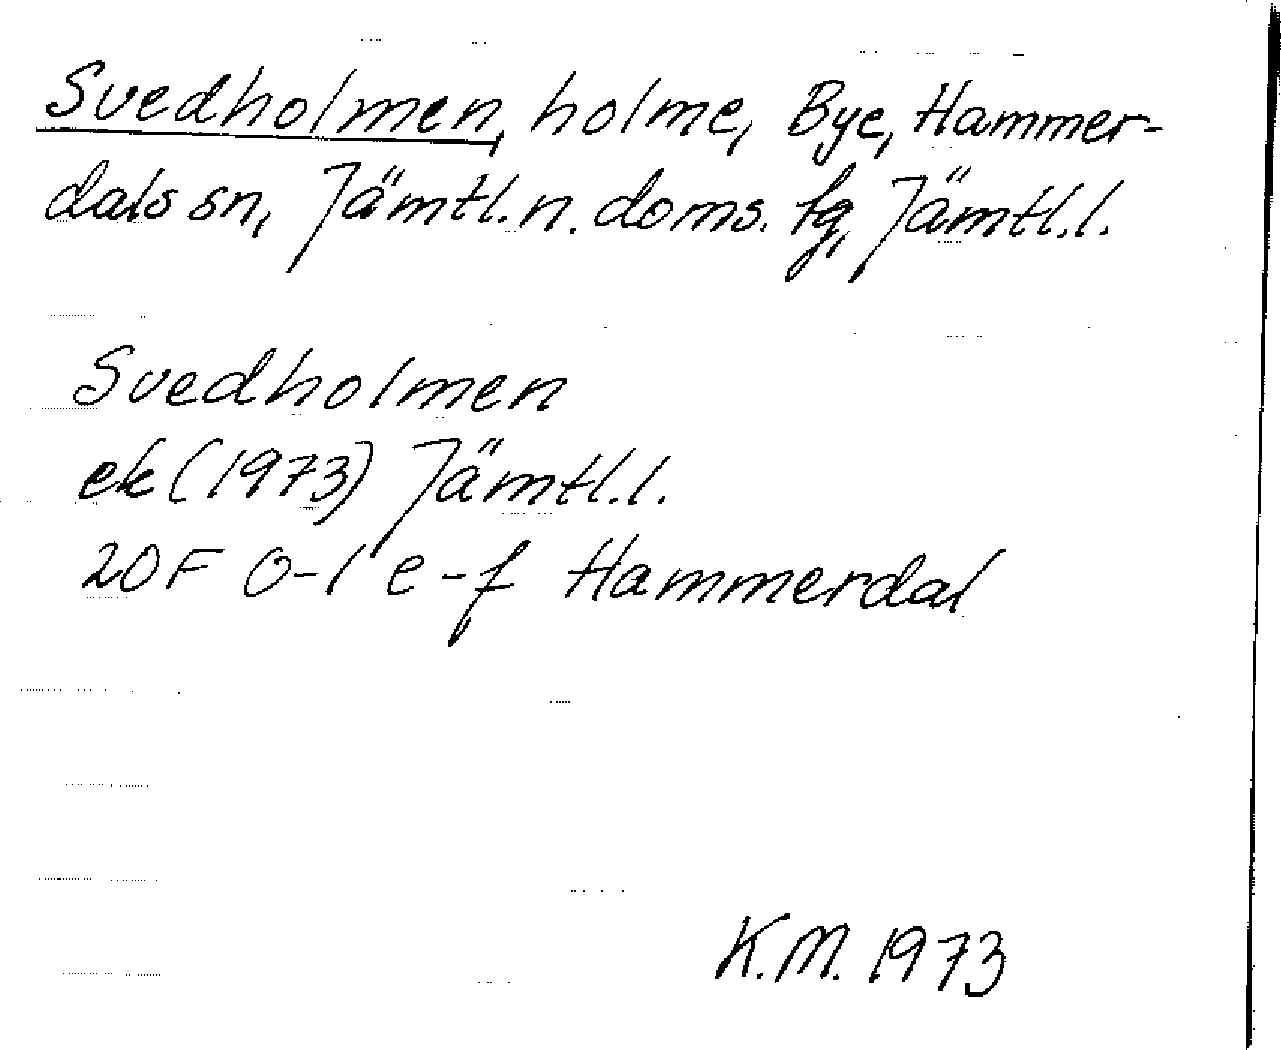 Svedholmen, holme, Bye, Hammer-
dals sn, Jämtl. n. doms. tg, Jämtl. l.
Svedholmen
ek (1973) Jämtl. l.
20F 0-1 e-f Hammerdal
K.M. 1973